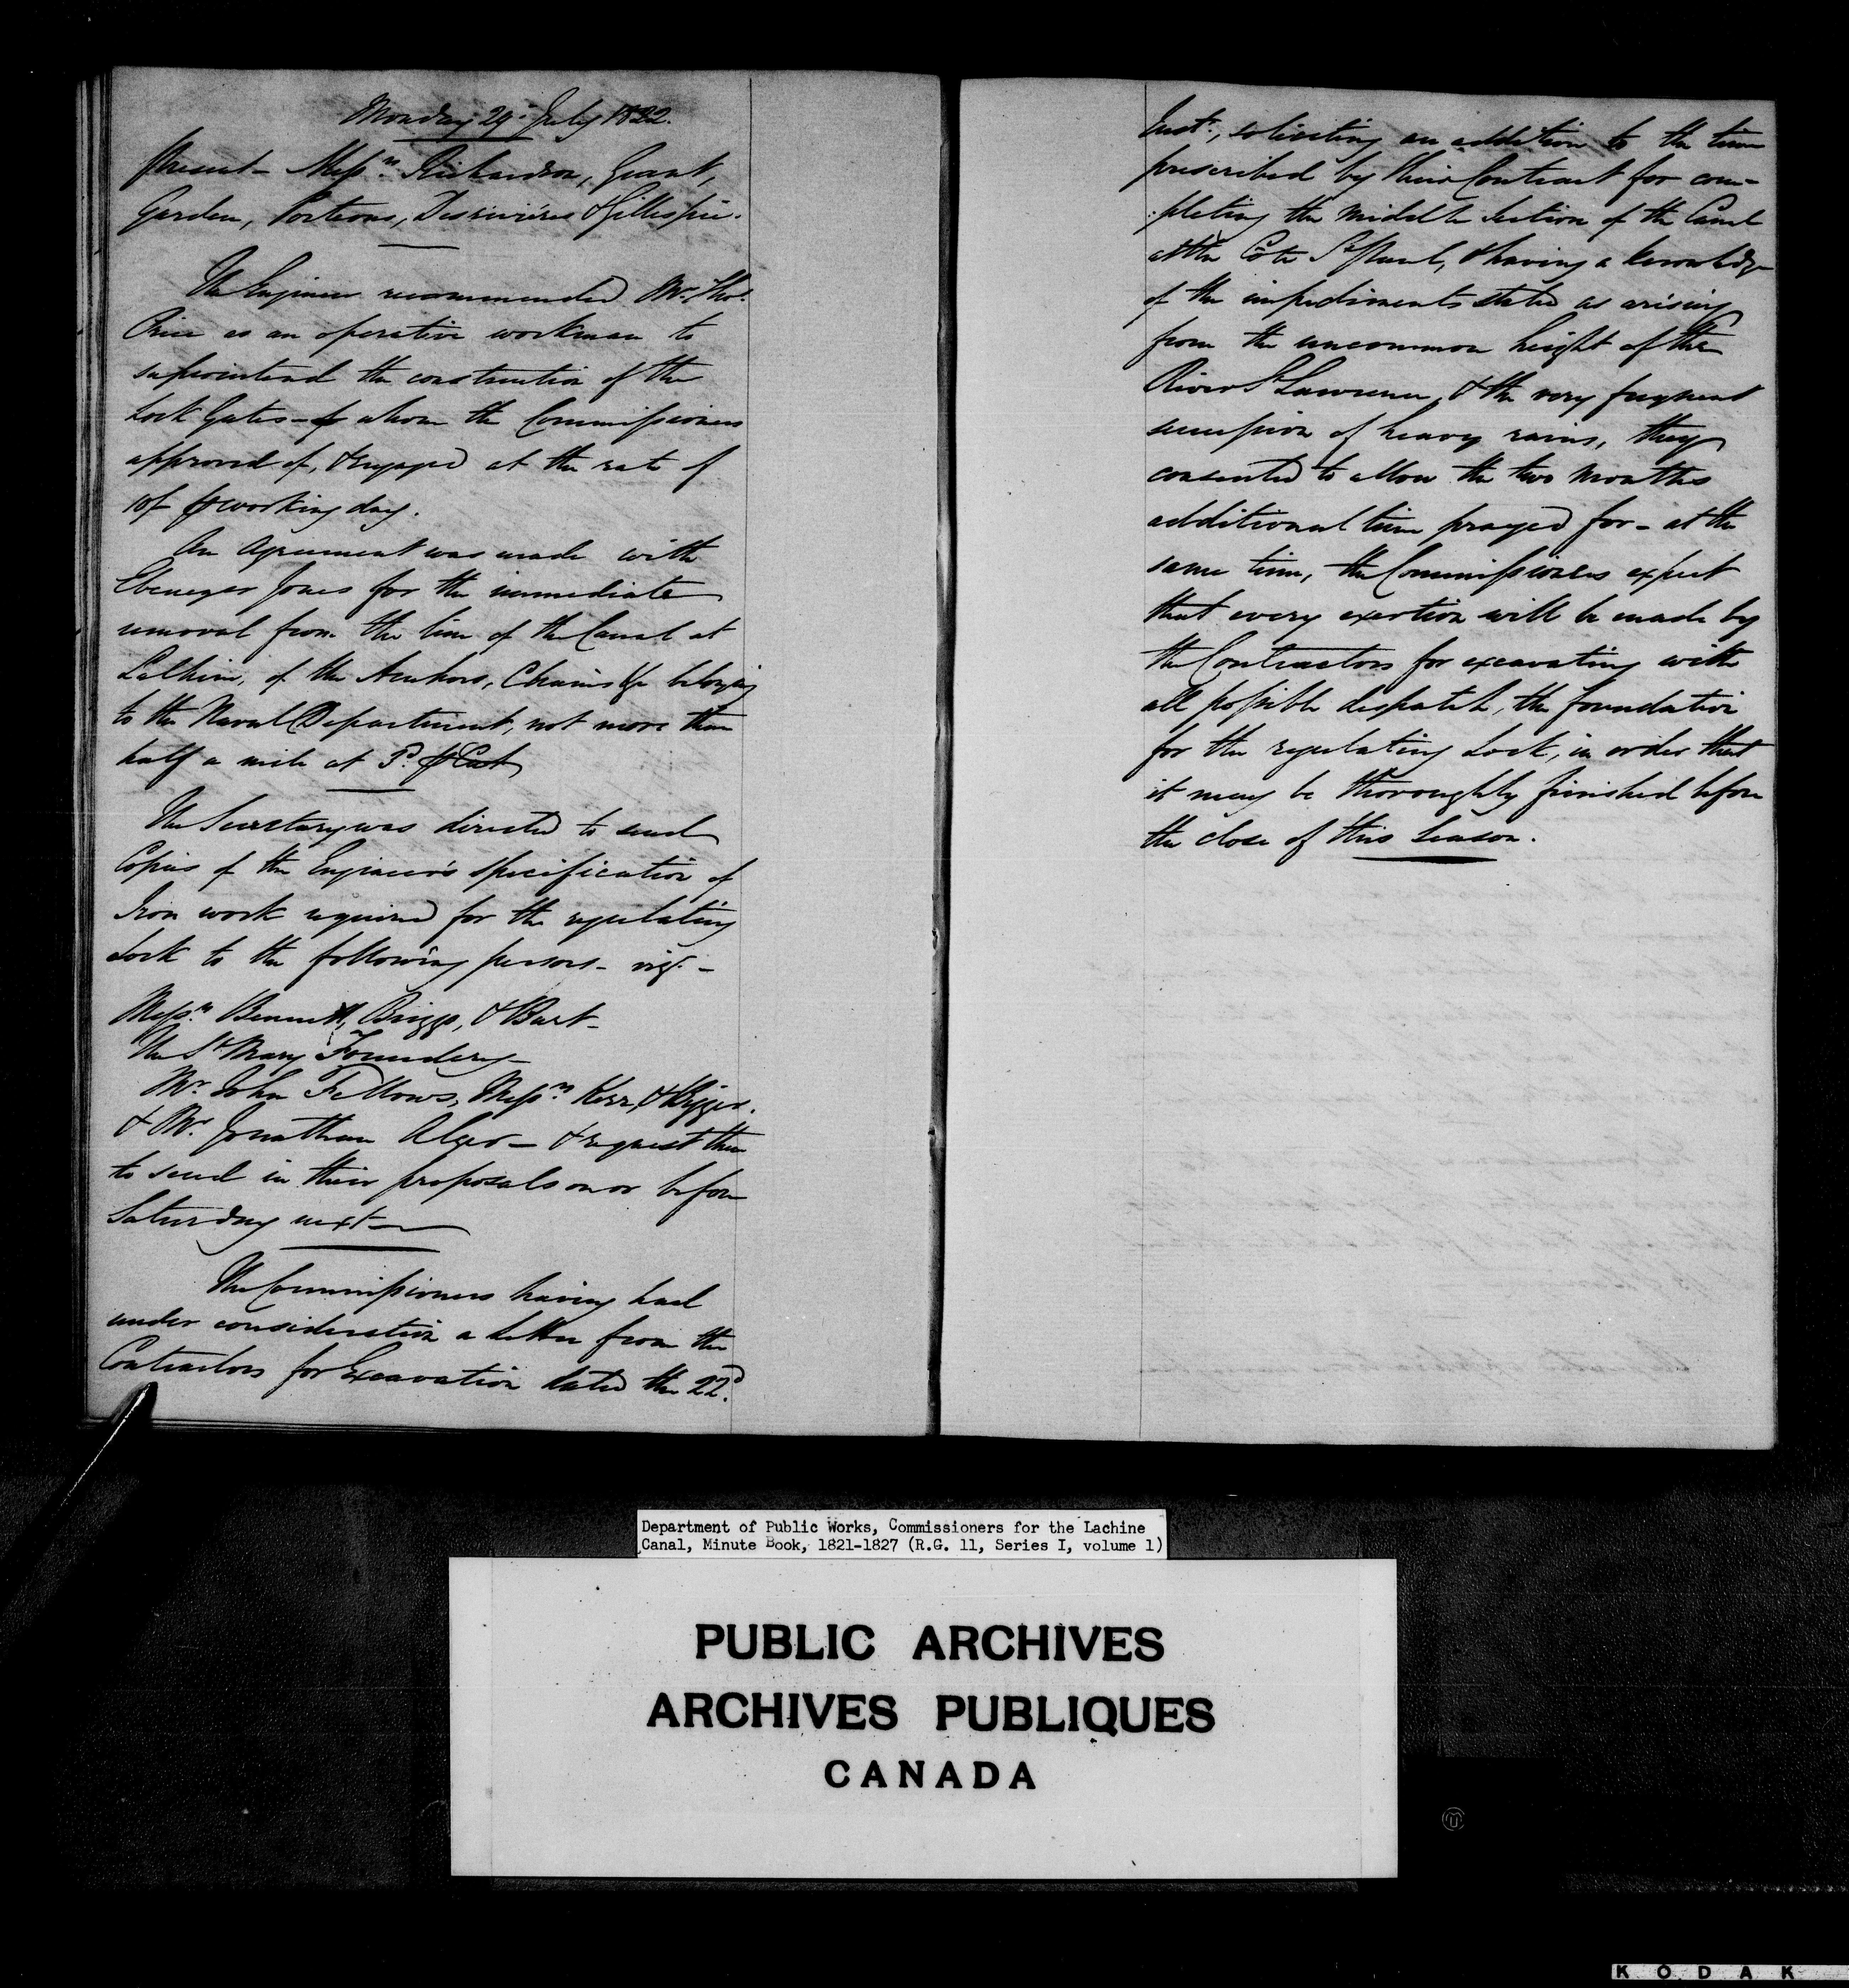 Monday 29. July 1822.
Present - Messrs. Richardson, Grant,
Garden, Porteous, Desrivières & Gillespie.
The Engineer recommended Mr. Thos.
Price as an operative workman to
superintend the construction of the
Lock Gates - whom the Commissioners
approved of, & engaged at the rate of
10/ working day.
An Agreement was made with
Ebenezer Jones for the immediate
removal from the line of the Canal at
Lachine, of the Anchors, Chains &c belonging
to the Naval Department, not more than
half a mile at Cwt
The Secretary was directed to send
Copies of the Engineer's specification of
Iron work required for the regulating
Lock to the following persons - viz. -
Messrs. Bennett, Briggs, & Burt -
The St. Mary Foundery -
Mr. John Fellows, Messrs. Kerr, &
& Mr. Jonathan Alger - & request them
to send in their proposals on or before
Saturday next -
The Commissioners having had
under consideration a Letter from the
Contractors for Excavation dated the 22d.
Inst., soliciting an addition to the time
prescribed by their Contract for com-
:pleting the middle Section of the Canal
at the Côte St. Paul, & having a knowledge
of the impediments stated as arising
from the uncommon height of the
River St. Lawrence, & the very frequent
succession of heavy rains, they
consented to allow the two months
additional time prayed for - at the
same time, the Commissioners expect
that every exertion will be made by
the Contractors for excavating with
all possible despatch, the foundation
for the regulating Lock, in order that
it may be thoroughly finished before
the close of this Season.
Department of Public Works, Commissioners for the Lachine
Canal, Minute Book, 1821-1827 (R.G. 11, Series I, volume 1)
PUBLIC ARCHIVES
ARCHIVES PUBLIQUES
CANADA
KODAK